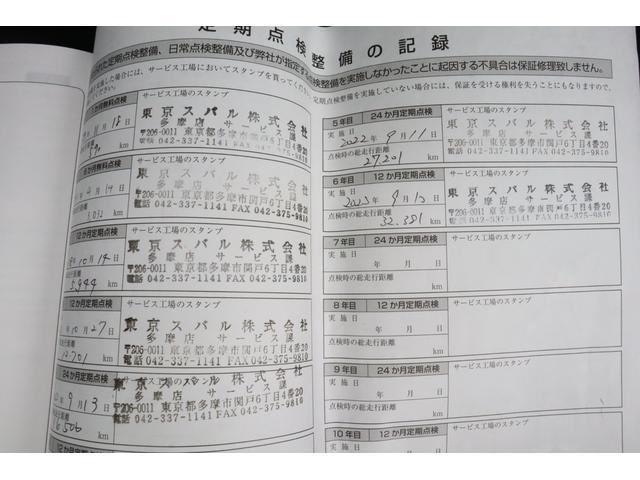 定期点検整備の記録
定期点検整備、日常点検整備及び弊社が指定する点検整備を実施しなかったことに起因する不具合は保証修理致しません。
実施した場合には、サービス工場においてスタンプを貰ってください。
定期点検整備を実施していない場合は、保証を受ける権利を失うこともありますので、
無料点検
サービス工場のスタンプ
東京スバル株式会社
多摩店 サービス課
〒206-0011 東京都多摩市関戸6丁目4番20
電話 042-337-1141 FAX 042-375-9810
km
無料点検
サービス工場のスタンプ
東京スバル株式会社
多摩店 サービス課
〒206-0011 東京都多摩市関戸6丁目4番20
電話 042-337-1141 FAX 042-375-9810
km
12か月定期点検
サービス工場のスタンプ
10月14日
東京スバル株式会社
多摩店 サービス課
〒206-0011 東京都多摩市関戸6丁目4番20
電話 042-337-1141 FAX 042-375-9810
5,944 km
12か月定期点検
サービス工場のスタンプ
10月27日
東京スバル株式会社
多摩店 サービス課
〒206-0011 東京都多摩市関戸6丁目4番20
電話 042-337-1141 FAX 042-375-9810
km
24か月定期点検
サービス工場のスタンプ
9月13日
東京スバル株式会社
多摩店 サービス課
〒206-0011 東京都多摩市関戸6丁目4番20
電話 042-337-1141 FAX 042-375-9810
km
サービス工場のスタンプ
5年目 24か月定期点検
サービス工場のスタンプ
実施日
2022年9月11日
点検時の総走行距離
27201 km
東京スバル株式会社
多摩店 サービス課
〒206-0011 東京都多摩市関戸6丁目4番20
電話 042-337-1141 FAX 042-375-9810
6年目 12か月定期点検
サービス工場のスタンプ
実施日
2023年9月10日
点検時の総走行距離
32,381 km
東京スバル株式会社
多摩店 サービス課
〒206-0011 東京都多摩市関戸6丁目4番20
電話 042-337-1141 FAX 042-375-9810
7年目 24か月定期点検
サービス工場のスタンプ
実施日
年 月 日
点検時の総走行距離
km
8年目 12か月定期点検
サービス工場のスタンプ
実施日
年 月 日
点検時の総走行距離
km
9年目 24か月定期点検
サービス工場のスタンプ
実施日
年 月 日
点検時の総走行距離
km
10年目 12か月定期点検
サービス工場のスタンプ
実施日
年 月 日